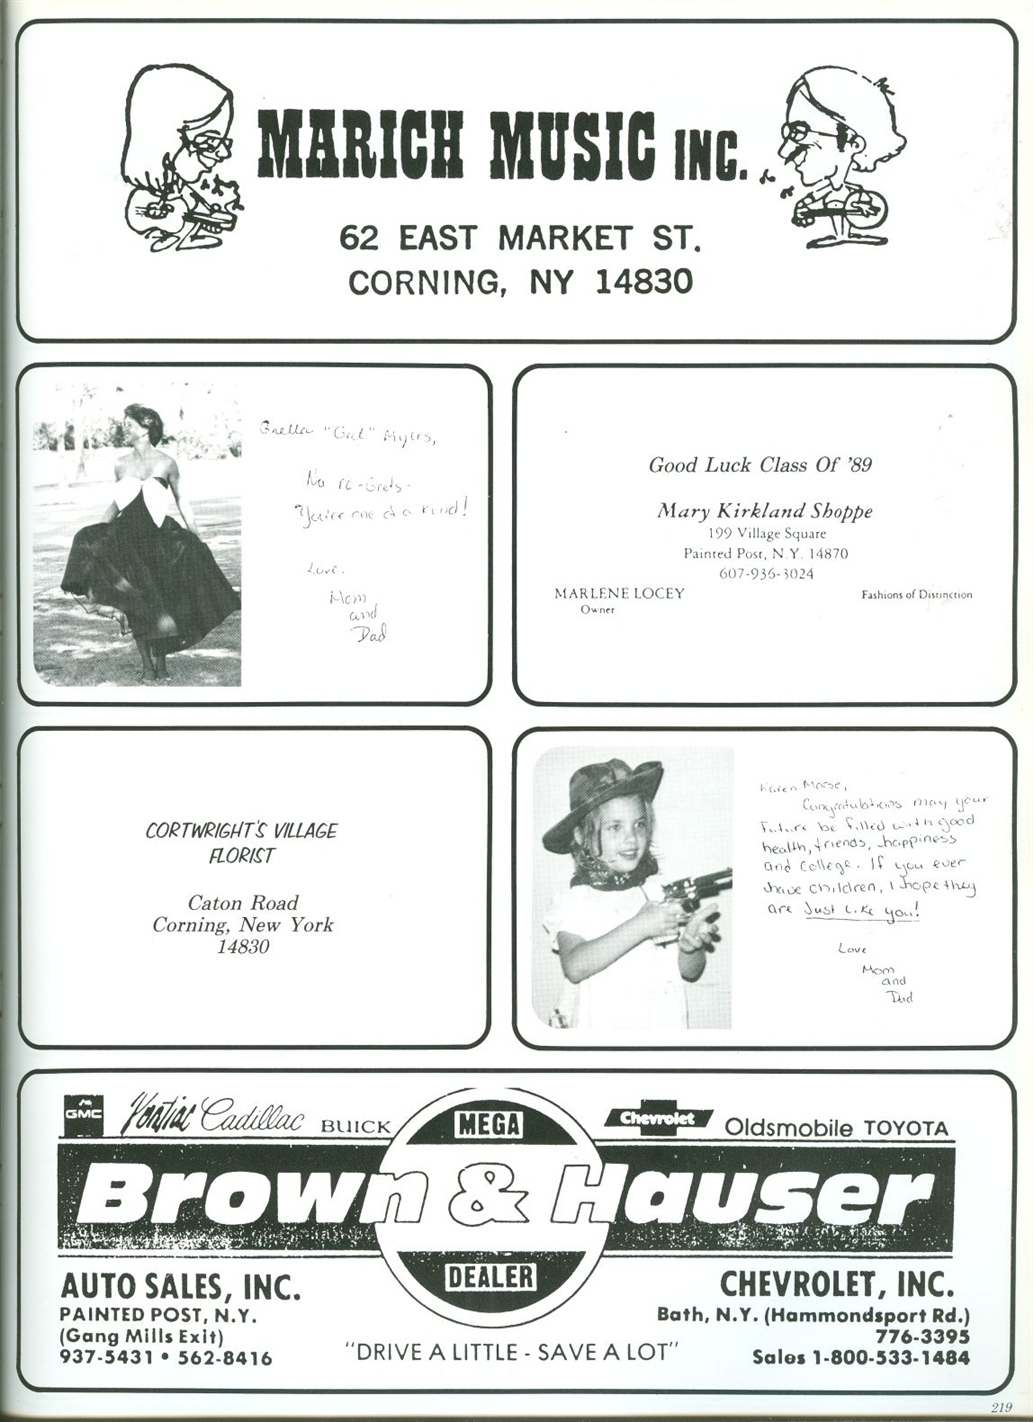 MARICH MUSIC INC.
62 EAST MARKET ST.
CORNING, NY 14830
"Gret" Myers,
No re-Grets-
You're one of a kind!
Love,
Mom
and
Dad
Good Luck Class Of '89
Mary Kirkland Shoppe
199 Village Square
Painted Post, N.Y. 14870
607-936-3024
MARLENE LOCEY
Owner
Fashions of Distinction
CORTWRIGHT'S VILLAGE
FLORIST
Caton Road
Corning, New York
14830
Karen Morse,
Congratulations may your
future be filled with good
health, friends, happiness
and college. If you ever
have children, I hope they
are Just Like you!
Love
Mom
and
Dad
GMC Pontiac Cadillac BUICK MEGA Chevrolet Oldsmobile TOYOTA
Brown & Hauser
DEALER
AUTO SALES, INC.
PAINTED POST, N.Y.
(Gang Mills Exit)
937-5431 • 562-8416
"DRIVE A LITTLE - SAVE A LOT"
CHEVROLET, INC.
Bath, N.Y. (Hammondsport Rd.)
776-3395
Sales 1-800-533-1484
219